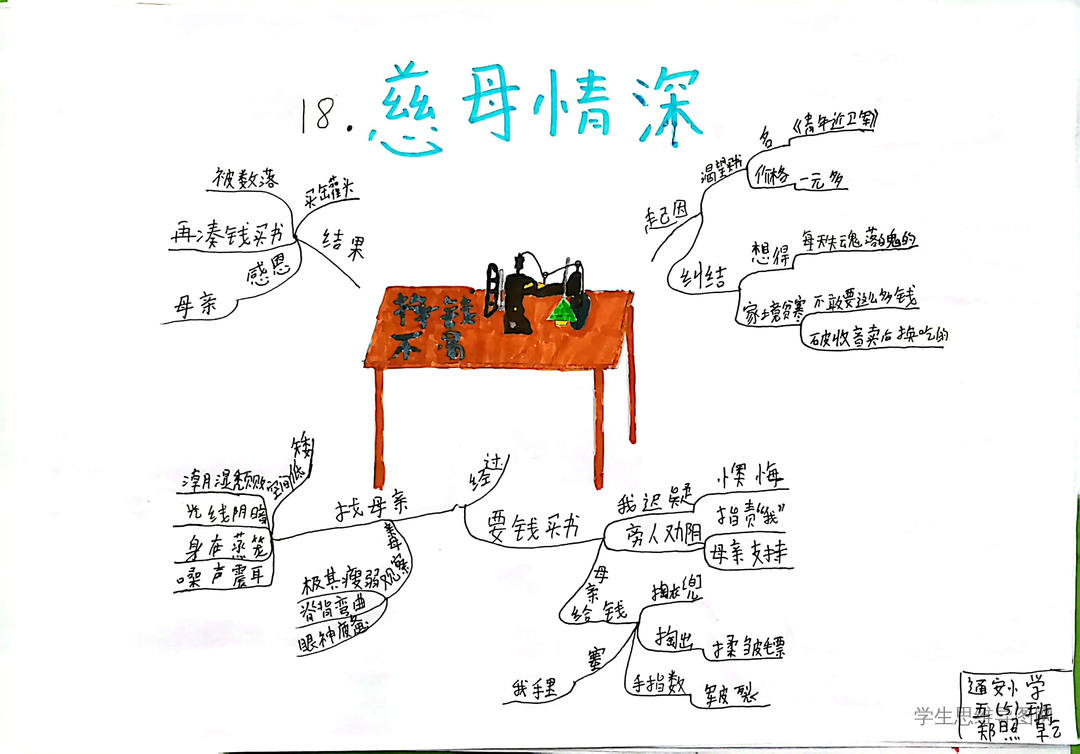 18.慈母情深
起因
渴望书
名
《青年近卫军》
价格
一元多
纠结
想得
每天失魂落魄的
家境贫寒
不敢要这么多钱
破收音卖后换吃的
经过
找母亲
空间低矮
潮湿颓败
光线阴暗
身在蒸笼
噪声震耳
观察母亲
极其瘦弱
脊背弯曲
眼神疲惫
要钱买书
我迟疑
懊悔
旁人劝阻
指责“我”
母亲支持
母亲给钱
掏衣兜
掏出
揉皱毛票
手指数
皲裂
塞
我手里
结果
买罐头
被数落
再凑钱买书
感恩
母亲
通安小学
五(5)班
郑照乾
学生思维导图